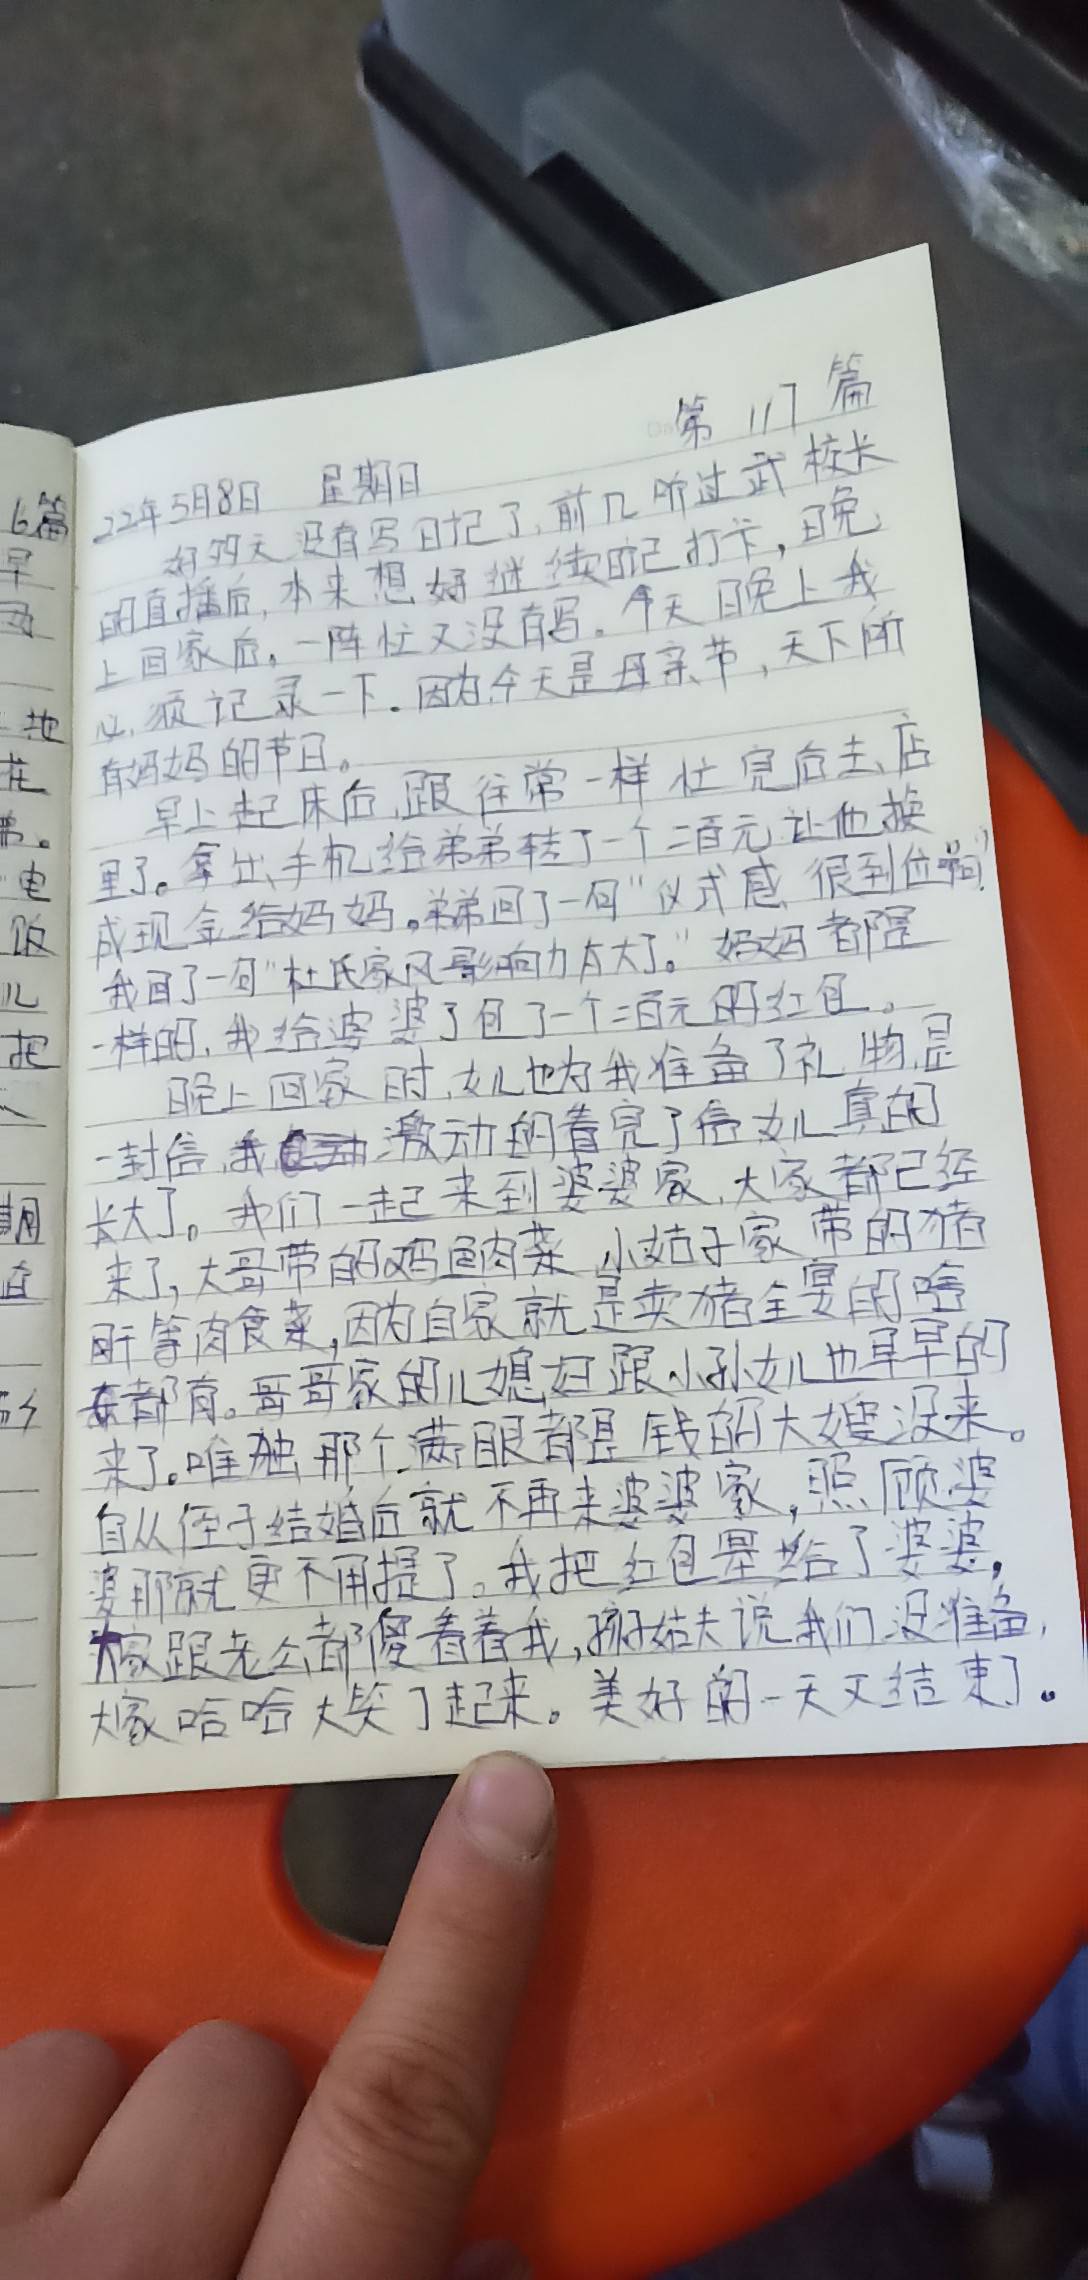 第117篇
22年5月8日 星期日
好多天没有写日记了,前几听过武校长
的直播后,本来想好继续日记打卡,晚
上回家后,一阵忙又没有写。今天晚上我
必须记录一下.因为今天是母亲节,天下所
有妈妈的节日。
早上起床后,跟往常一样忙完后去店
里了。拿出手机给弟弟转了一个二百元让他换
成现金给妈妈。弟弟回了一句"仪式感很到位
我回了一句"杜氏家风影响力太大了。"妈妈都是
一样的,我给婆婆了包了一个二百元的红包。
晚上回家时,女儿也为我准备了礼物,是
一封信,我激动的看完了信女儿真的
长大了。我们一起来到婆婆家,大家都已经
来了,大哥带的鸡鱼肉菜,小姑子家带的猪
肝等肉食菜,因为自家就是卖猪全宴的啥
都有。哥哥家的儿媳妇跟小孙女儿也早早的
来了。唯独那个满眼都是钱的大嫂没来。
自从侄子结婚后就不再来婆婆家,照顾婆
婆那就更不用提了。我把红包给了婆婆,
大家跟老公都傻看着我,孩子姑夫说我们没准备,
大家哈哈大笑了起来。美好的一天又结束了。
篇
早
地
花
电
饭
儿
把
期
直